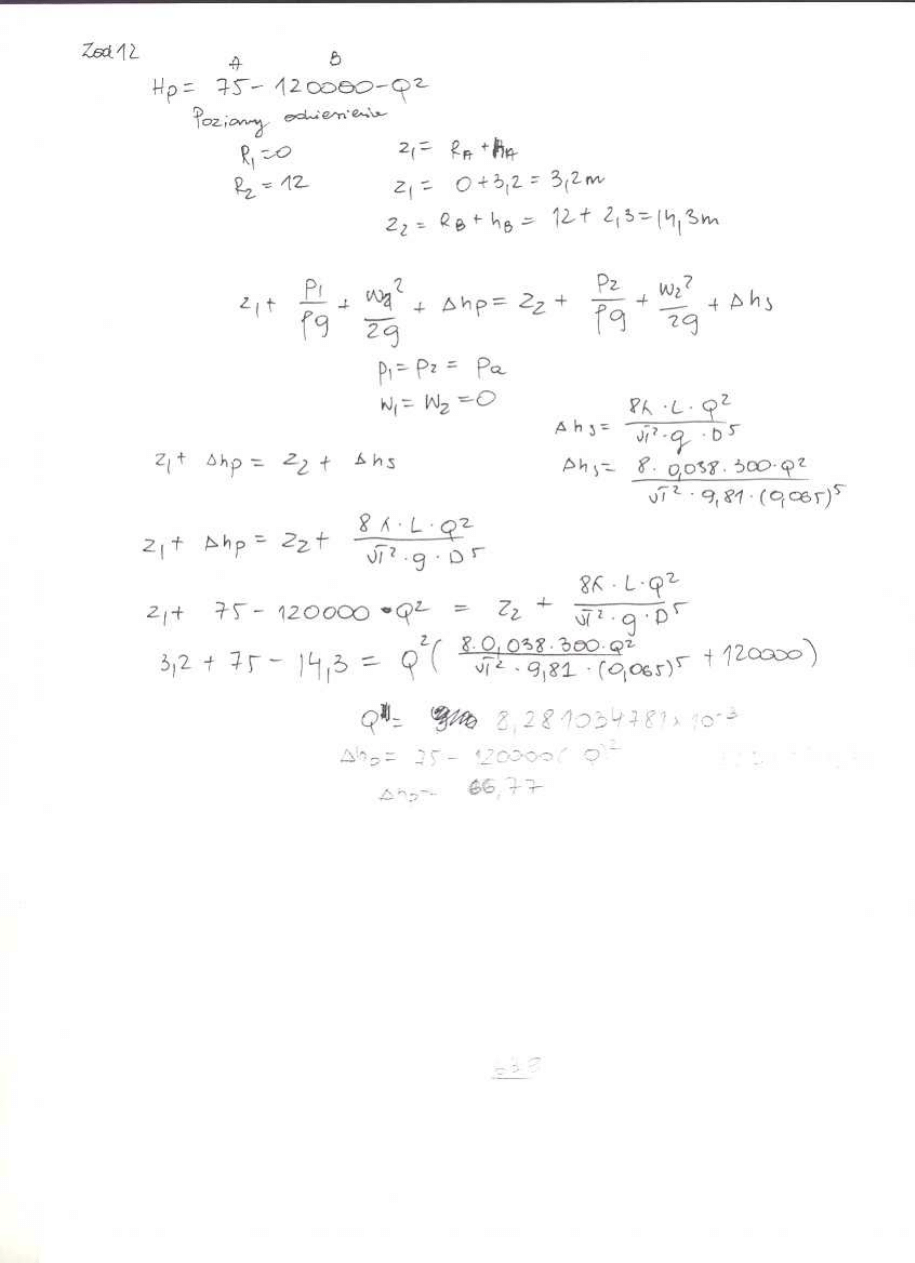 Zad 12
A B
Hp = 75 - 120000 - Q²
Poziomy odniesienia
R₁ = 0 z₁ = R_A + h_A
R₂ = 12 z₁ = 0 + 3,2 = 3,2 m
z₂ = R_B + h_B = 12 + 2,3 = 14,3 m
z₁ + P₁/ρg + w₁²/2g + Δhp = z₂ + P₂/ρg + w₂²/2g + Δhs
P₁ = P₂ = Pa
w₁ = w₂ = 0
Δhs = 8λ · L · Q² / π² · g · D⁵
z₁ + Δhp = z₂ + Δhs
Δhs = 8 · 0,038 · 300 · Q² / π² · 9,81 · (0,065)⁵
z₁ + Δhp = z₂ + 8λ · L · Q² / π² · g · D⁵
z₁ + 75 - 120000 · Q² = z₂ + 8λ · L · Q² / π² · g · D⁵
3,2 + 75 - 14,3 = Q² ( 8 · 0,038 · 300 · Q² / π² · 9,81 · (0,065)⁵ + 120000 )
Q = 8,281034781 × 10⁻³
Δhp = 75 - 120000 ( Q )²
Δhp = 66,77